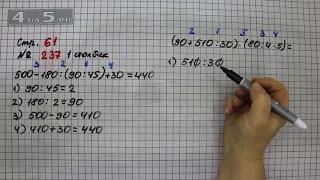 Стр. 61
№ 237 1 столбик
3 2 1 4
500-180:(90:45)+30=440
1) 90:45=2
2) 180:2=90
3) 500-90=410
4) 410+30=440
2 1 5 3 4
(90+510:30):(80:4·5)=
1) 510:30